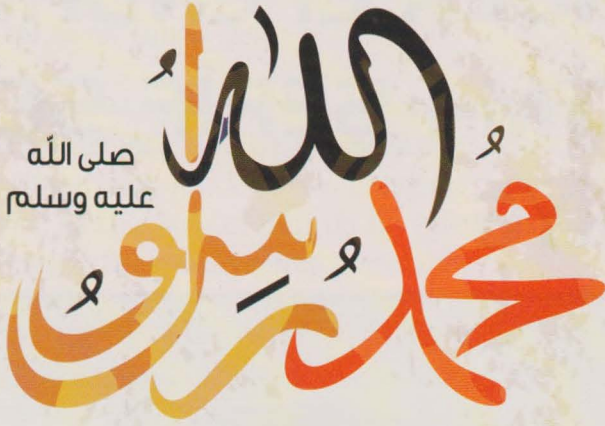 محمد رسول
الله
صلى الله
عليه وسلم